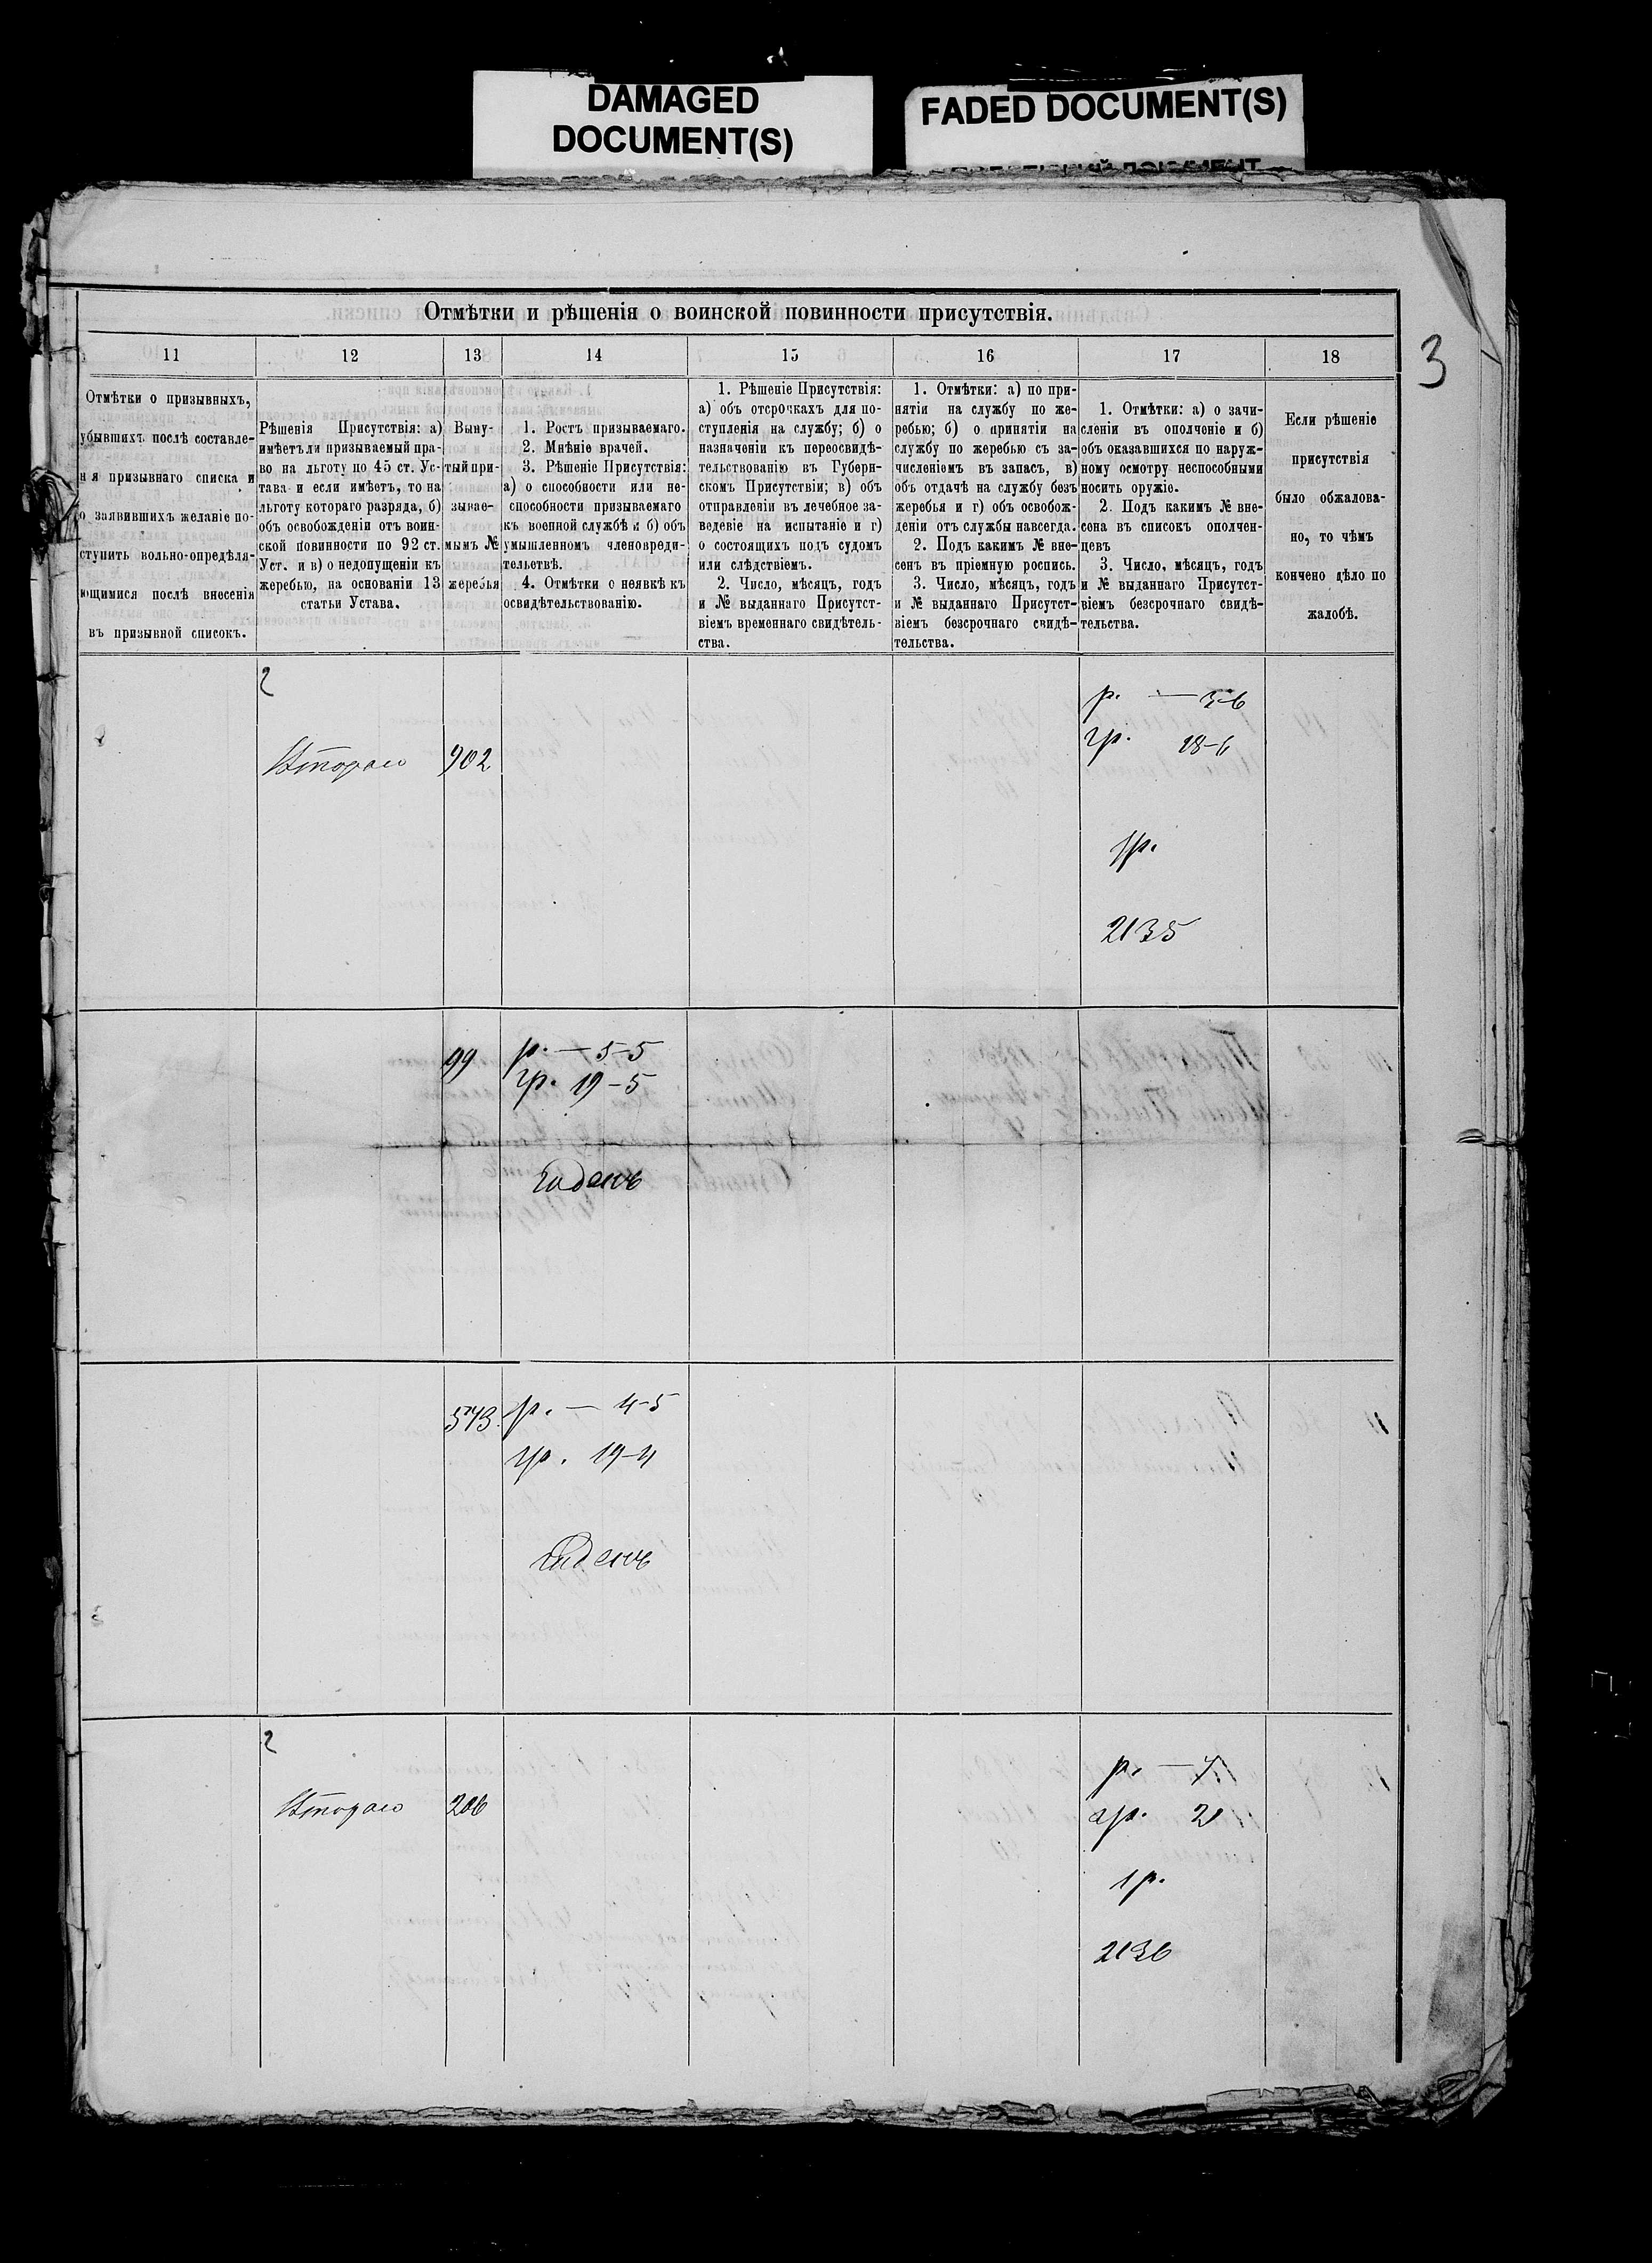 DAMAGED
DOCUMENT(S)
FADED DOCUMENT(S)
3
Отмѣтки и рѣшенія о воинской повинности присутствія.
11
12
13
14
15
16
17
18
Отмѣтки о призывныхъ,
убывшихъ послѣ составле-
нія призывнаго списка и
о заявившихъ желаніе по-
ступить вольно-опредѣля-
ющимися послѣ внесенія
въ призывной списокъ.
Рѣшенія Присутствія: а)
имѣетъ ли призываемый пра-
во на льготу по 45 ст. Ус-
тава и если имѣетъ, то на
льготу котораго разряда, б)
объ освобожденіи отъ воин-
ской повинности по 92 ст.
Уст. и в) о недопущеніи къ
жеребью, на основаніи 13
статьи Устава.
Выну-
тый при-
зывае-
мымъ №
жеребья
1. Ростъ призываемаго.
2. Мнѣніе врачей.
3. Рѣшеніе Присутствія:
а) о способности или не-
способности призываемаго
къ военной службѣ и б) объ
умышленномъ членовреди-
тельствѣ.
4. Отмѣтки о неявкѣ къ
освидѣтельствованію.
1. Рѣшеніе Присутствія:
а) объ отсрочкахъ для по-
ступленія на службу; б) о
назначеніи къ переосвидѣ-
тельствованію въ Губерн-
скомъ Присутствіи; в) объ
отправленіи въ лечебное за-
веденіе на испытаніе и г)
о состоящихъ подъ судомъ
или слѣдствіемъ.
2. Число, мѣсяцъ, годъ
и № выданнаго Присутст-
віемъ временнаго свидѣтель-
ства.
1. Отмѣтки: а) по при-
нятіи на службу по же-
ребью; б) о принятіи на
службу по жеребью съ за-
численіемъ въ запасъ, в)
объ отдачѣ на службу безъ
жеребья и г) объ освобож-
деніи отъ службы навсегда.
2. Подъ какимъ № вне-
сенъ въ пріемную роспись.
3. Число, мѣсяцъ, годъ
и № выданнаго Присутст-
віемъ безсрочнаго свидѣ-
тельства.
1. Отмѣтки: а) о зачи-
сленіи въ ополченіе и б)
объ оказавшихся по наруж-
ному осмотру неспособными
носить оружіе.
2. Подъ какимъ № вне-
сена въ списокъ ополчен-
цевъ
3. Число, мѣсяцъ, годъ
и № выданнаго Присутст-
віемъ безсрочнаго свидѣ-
тельства.
Если рѣшеніе
присутствія
было обжалова-
но, то чѣмъ
кончено дѣло по
жалобѣ.
2
Втораго
902
р. — 3-6
гр. 18-6
1р.
2135
99
р. — 5-5
гр. 19-5
Годенъ
573.
р. — 4-5
гр. 19-4
Годенъ
2
Втораго
206
р. —
гр. 21
1р.
2136